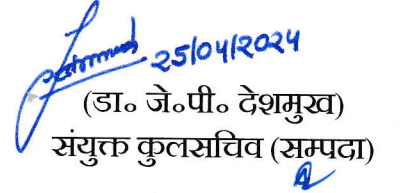 25/04/2024
(डा० जे०पी० देशमुख)
संयुक्त कुलसचिव (सम्पदा)